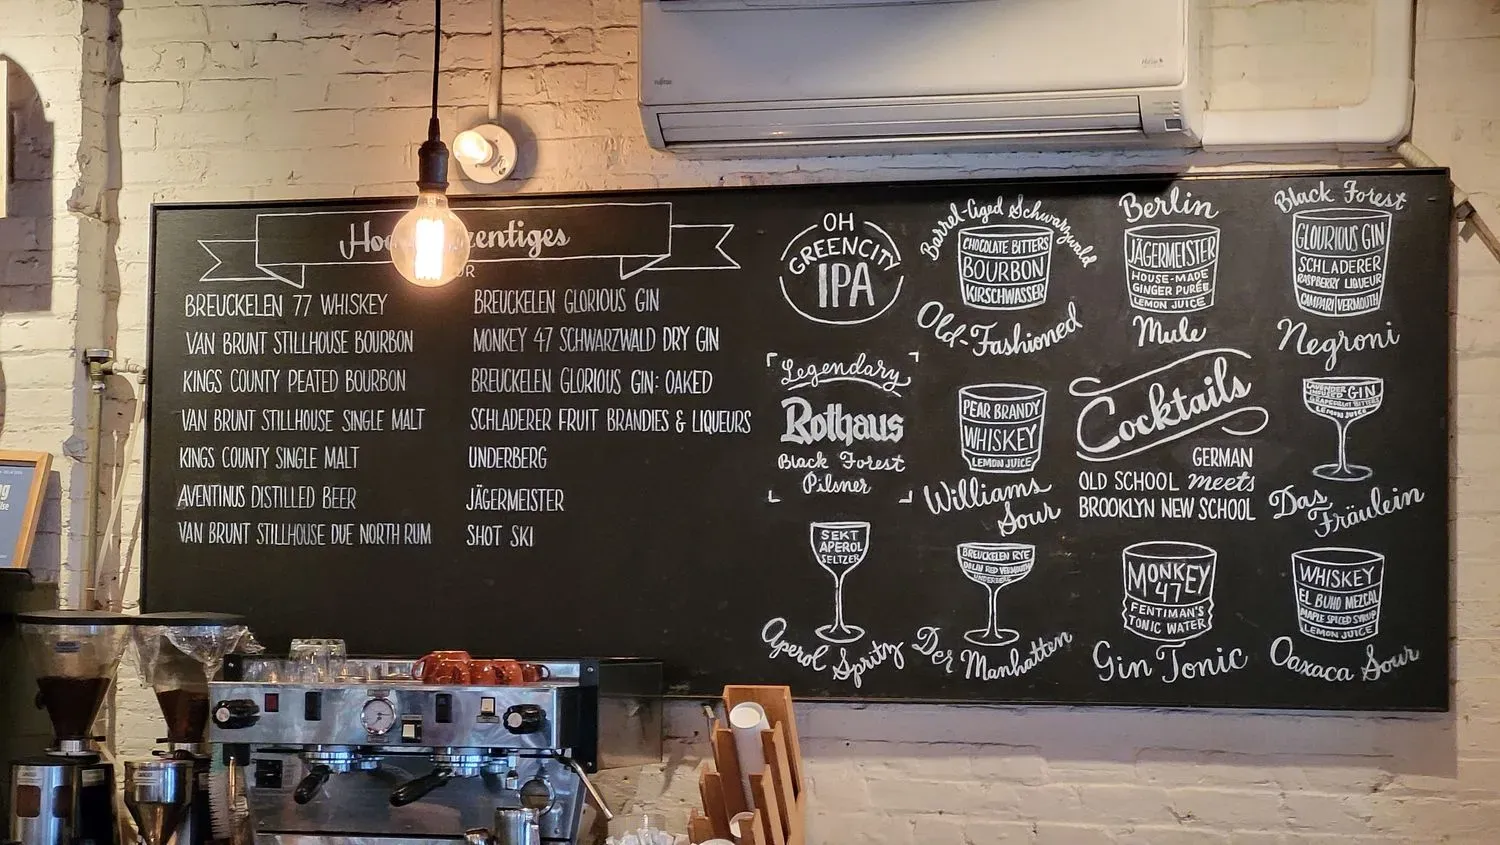 BREUCKELEN 77 WHISKEY
VAN BRUNT STILLHOUSE BOURBON
KINGS COUNTY PEATED BOURBON
VAN BRUNT STILLHOUSE SINGLE MALT
KINGS COUNTY SINGLE MALT
AVENTINUS DISTILLED BEER
VAN BRUNT STILLHOUSE DUE NORTH RUM
BREUCKELEN GLORIOUS GIN
MONKEY 47 SCHWARZWALD DRY GIN
BREUCKELEN GLORIOUS GIN: OAKED
SCHLADERER FRUIT BRANDIES & LIQUEURS
UNDERBERG
JÄGERMEISTER
SHOT SKI
OH
GREENCITY
IPA
Legendary
Rothaus
Black Forest
Pilsner
SEKT
APEROL
SELTZER
Aperol Spritz
Barrel-Aged Schwarzwald
CHOCOLATE BITTERS
BOURBON
KIRSCHWASSER
Old-Fashioned
PEAR BRANDY
WHISKEY
LEMON JUICE
Williams
Sour
BREUCKELEN RYE
DOLIN RED VERMOUTH
UNDERBERG
Der Manhatten
Berlin
JÄGERMEISTER
HOUSE-MADE
GINGER PURÉE
LEMON JUICE
Mule
Cocktails
GERMAN
OLD SCHOOL meets
BROOKLYN NEW SCHOOL
MONKEY
47
FENTIMAN'S
TONIC WATER
Gin Tonic
Black Forest
GLOURIOUS GIN
SCHLADERER
RASPBERRY LIQUEUR
CAMPARI VERMOUTH
Negroni
LAVENDER INFUSED GIN
GRAPEFRUIT BITTERS
LEMON JUICE
Das
Fräulein
WHISKEY
EL BUHO MEZCAL
MAPLE SPICED SYRUP
LEMON JUICE
Oaxaca Sour